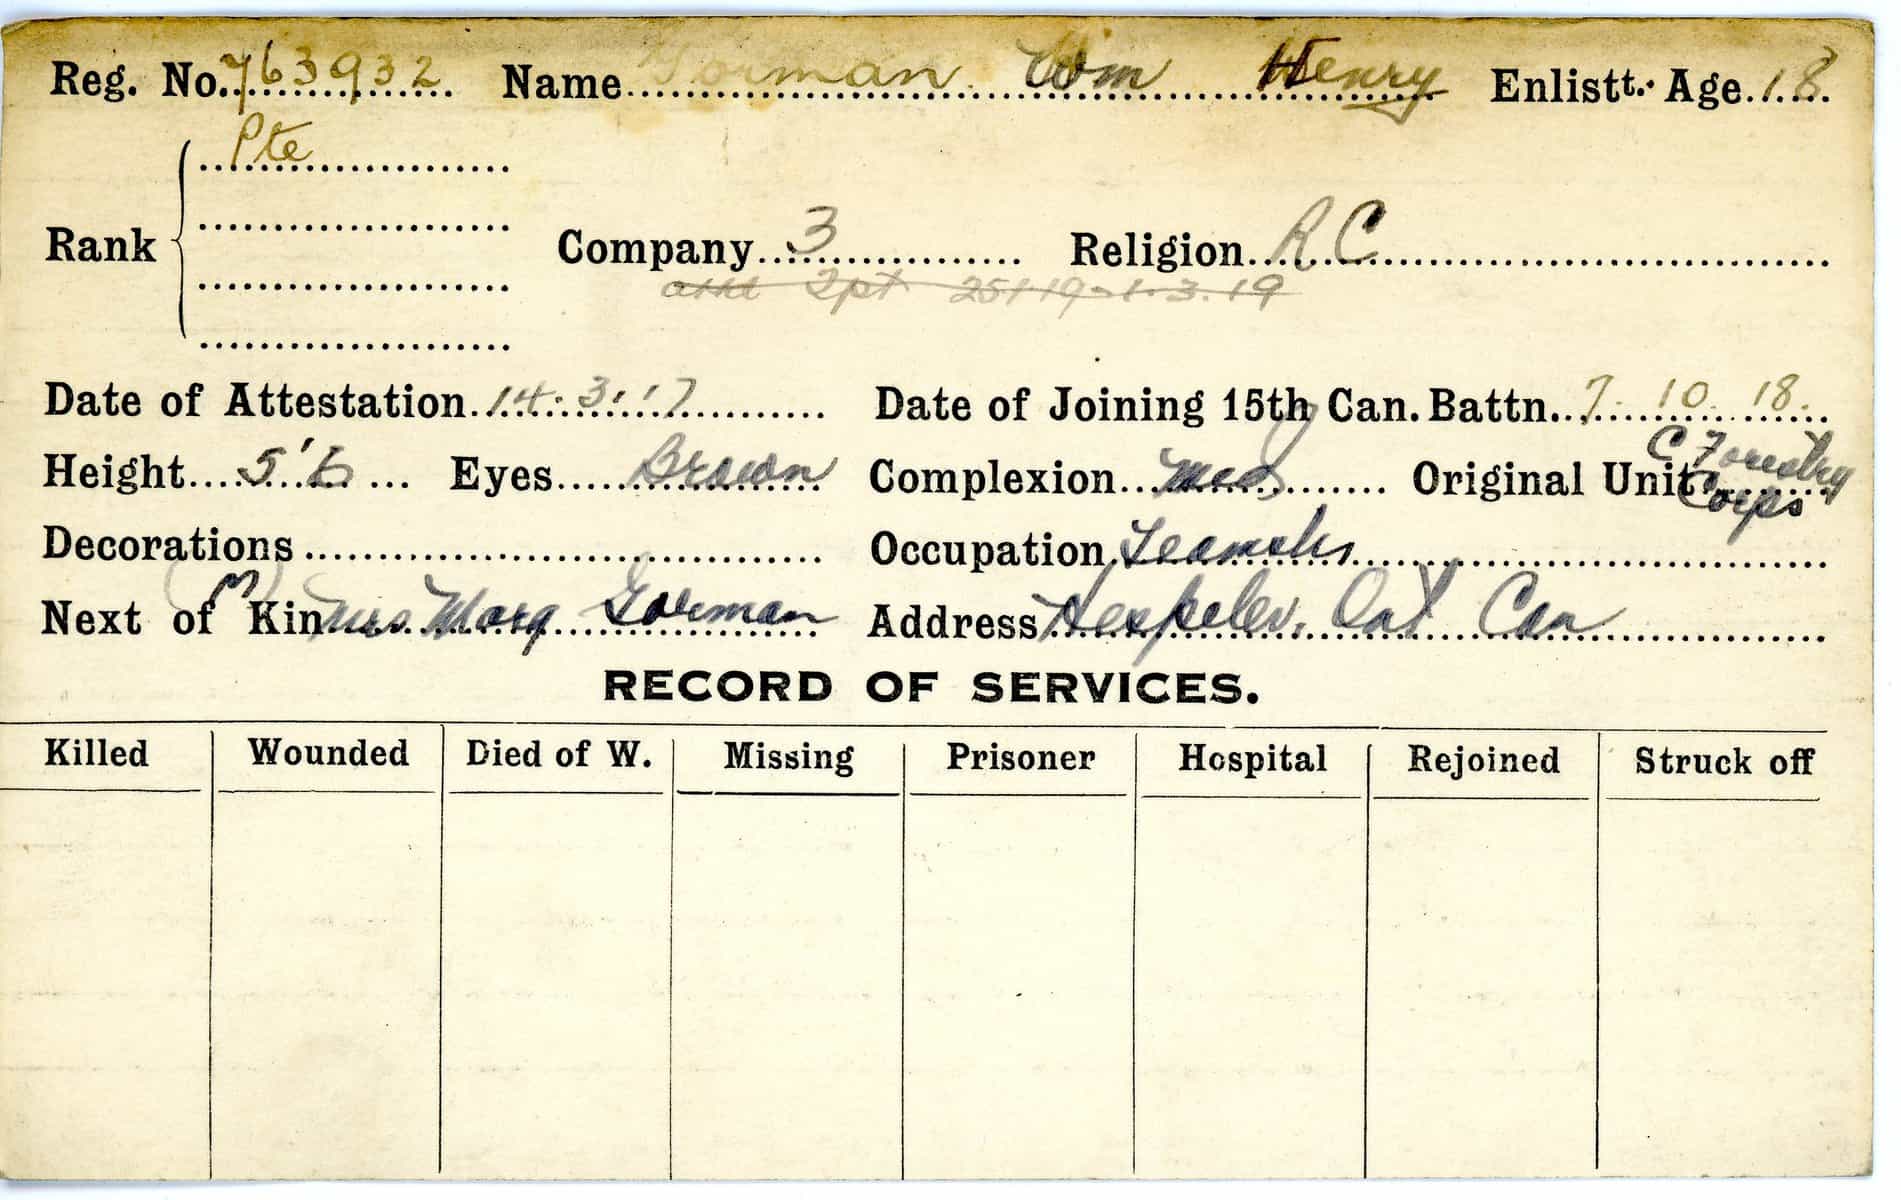 Reg. No. 763932 Name Gorman Wm Henry Enlistt. Age 18
Pte
Rank Company 3 Religion R C
2pt 25 1 19 - 1. 3. 19
Date of Attestation 14. 3. 17 Date of Joining 15th Can. Battn. 7. 10. 18.
Height 5'6 Eyes Brown Complexion Med Original Unit C Forestry Corps
Decorations Occupation Teamster
(M)
Next of Kin Mrs Marg Gorman Address Hespeler, Ont Can
RECORD OF SERVICES.
Killed Wounded Died of W. Missing Prisoner Hospital Rejoined Struck off